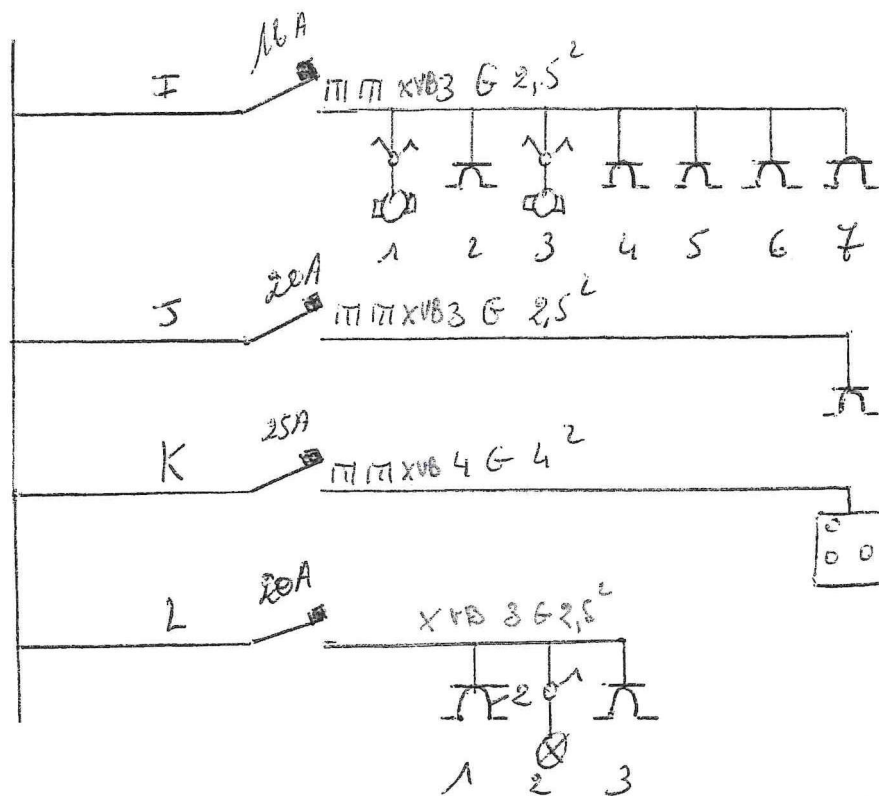 16A
I XVB3 G 2,5²
1 2 3 4 5 6 7
20A
J XVB3 G 2,5²
25A
K XVB 4 G 4²
20A
L XVB 3 G 2,5²
2 1
1 2 3